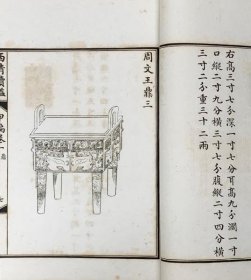 右高三寸七分深一寸七分耳高九分濶一寸
口縱二寸九分橫三寸七分腹縱二寸四分橫
三寸二分重三十二兩
周文王鼎三
西清續鑑
甲編卷一
鼎
七